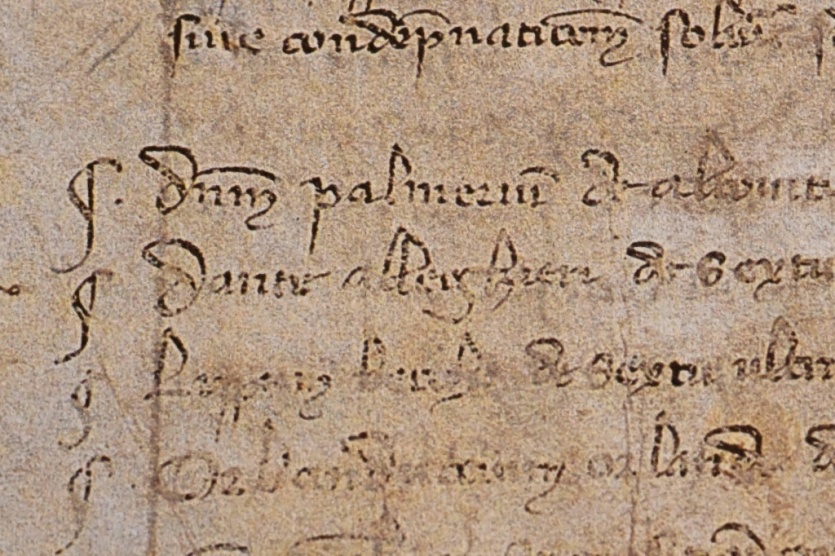 siue condēpnatiōem solu
¶. Dn̄m palmeriū de altouit
¶ Dante alleghieri de sextu
¶ Lippum becche de sextu ultra
¶. Orlanduccium orlandi d